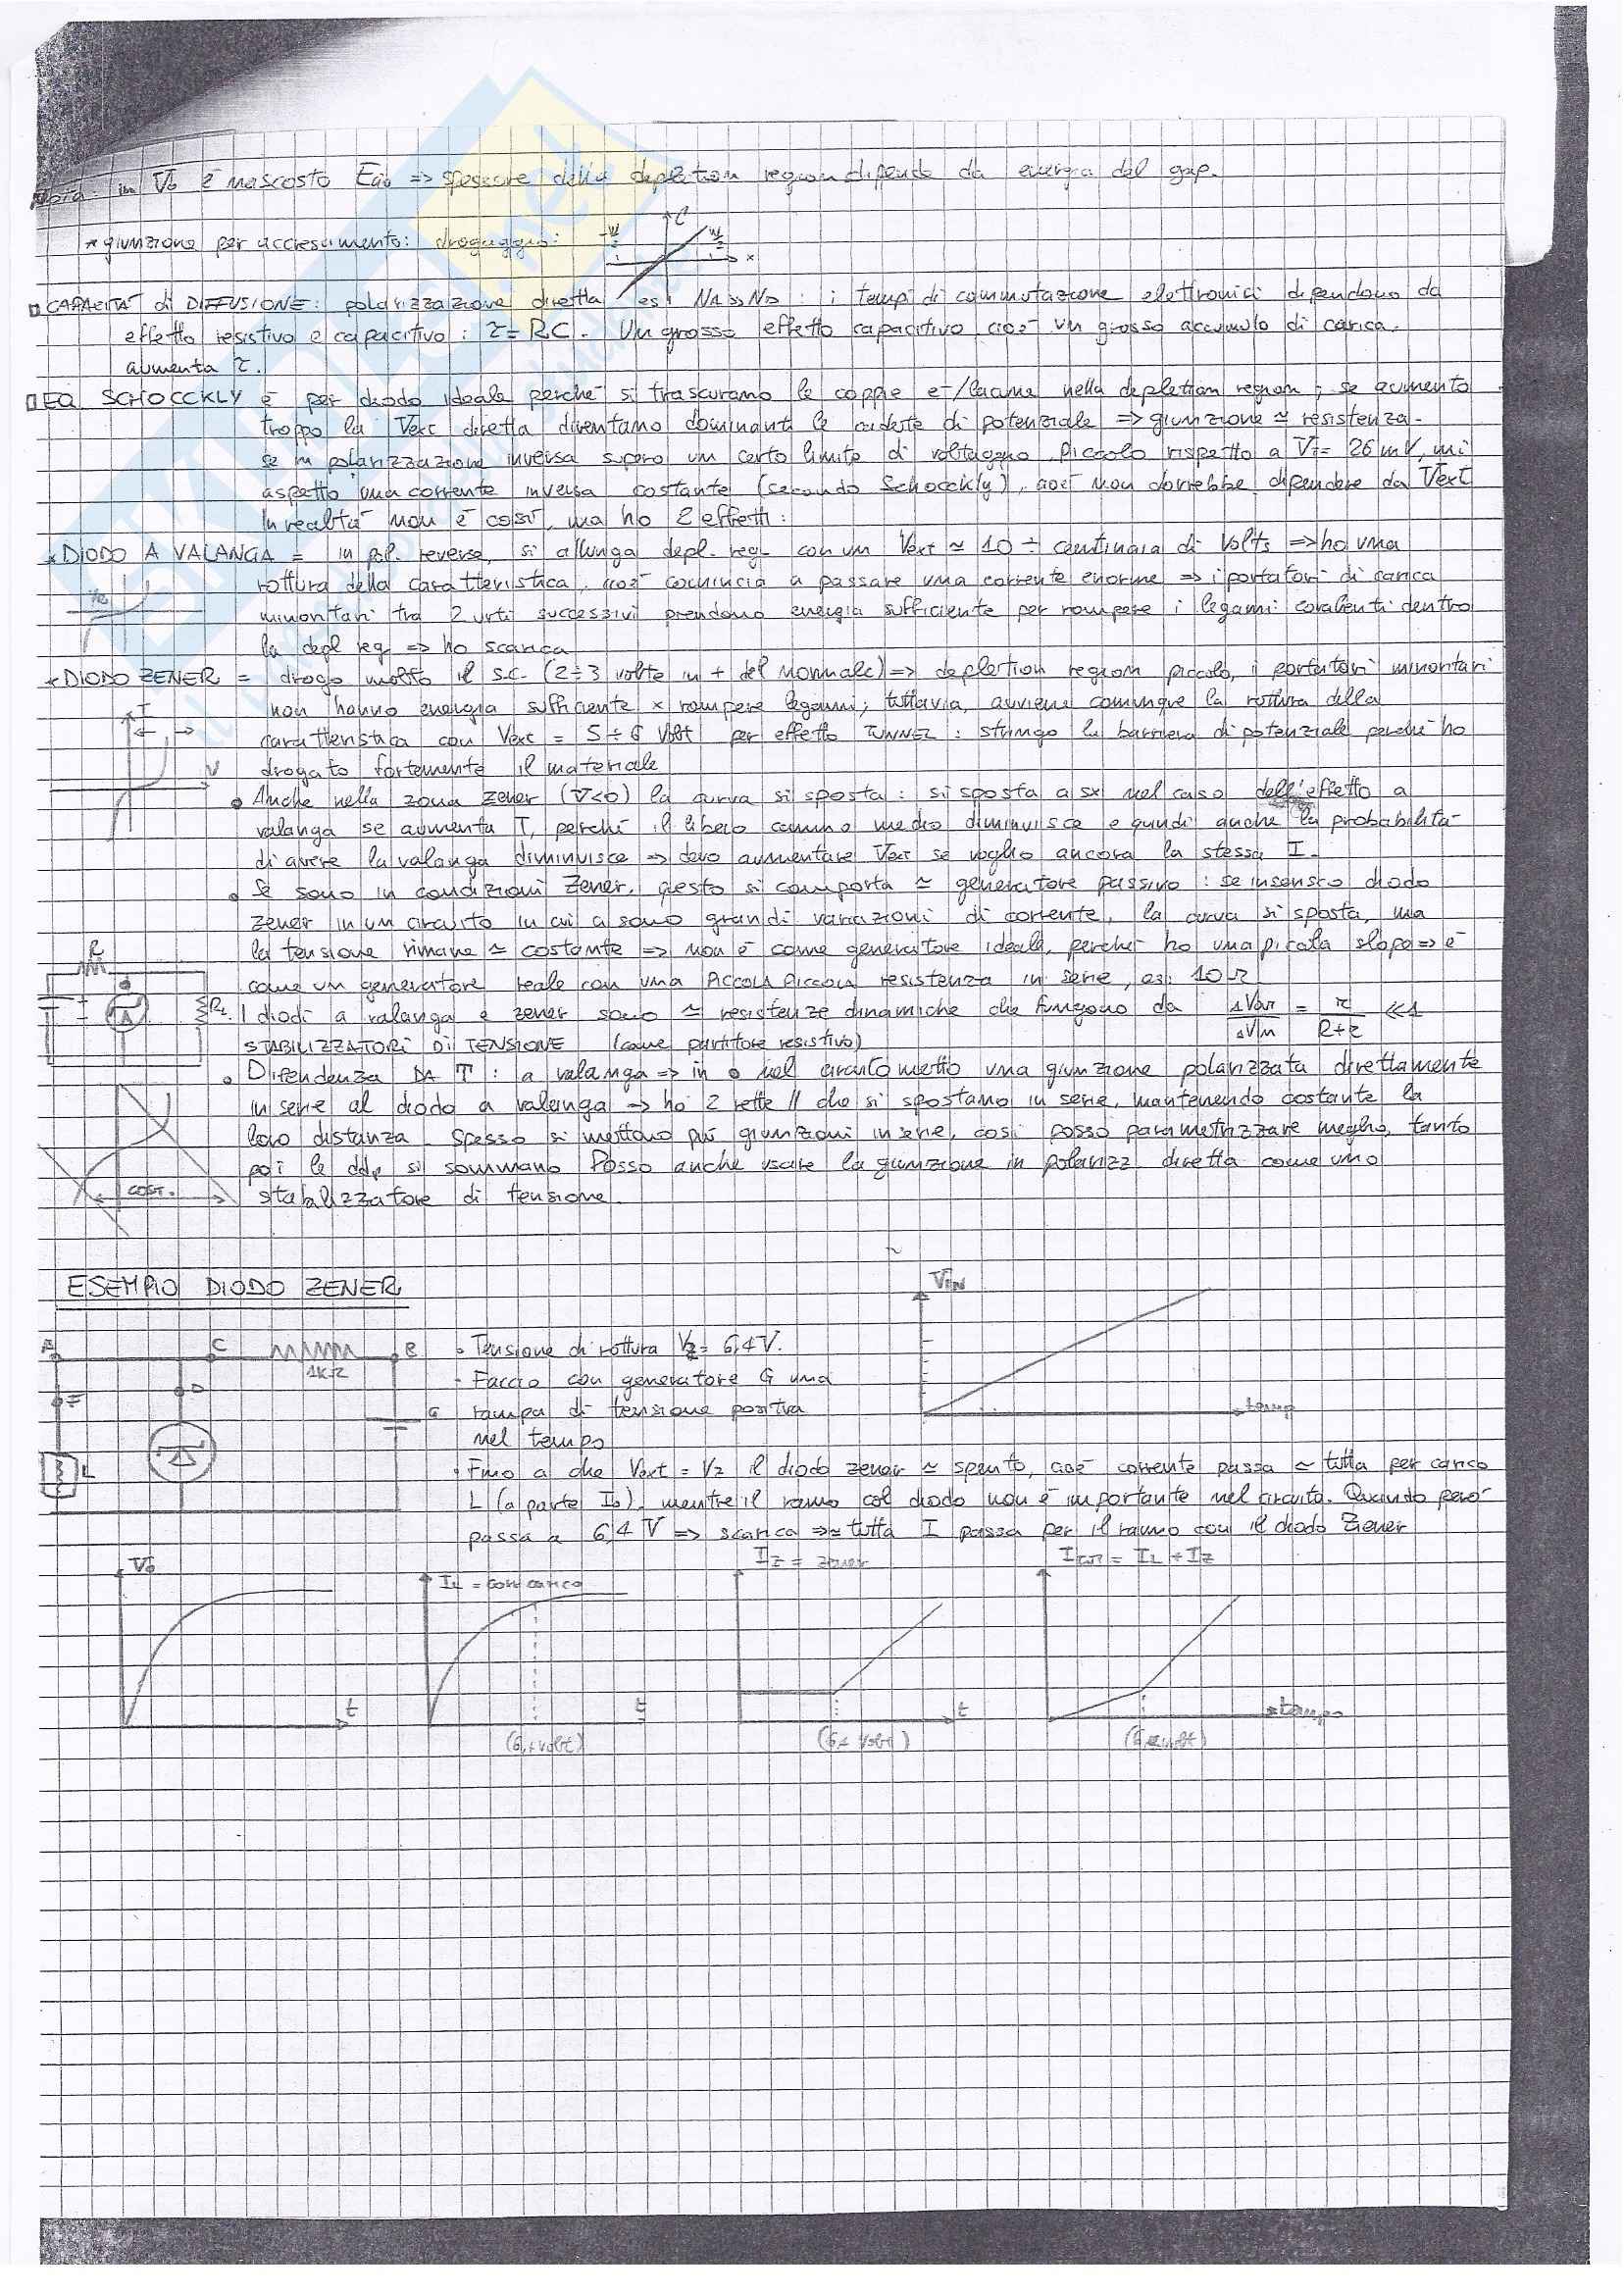 Nota: in V₀ è nascosto EG0 => spessore della depletion region dipende da energia del gap.
* giunzione per accrescimento: drogaggio:
C
-W/2
W/2
x
□ CAPACITA' di DIFFUSIONE: polarizzazione diretta es: NA>>ND : i tempi di commutazione elettronici dipendono da
effetto resistivo e capacitivo: τ=RC. Un grosso effetto capacitivo, cioè un grosso accumulo di carica
aumenta τ.
□ EQ SCHOCCKLY è per diodo ideale perché si trascurano le coppie e-/lacune nella depletion region; se aumento
troppo la Vext diretta diventano dominanti le cadute di potenziale => giunzione ≃ resistenza.
se in polarizzazione inversa supero un certo limite di voltaggio, piccolo rispetto a VT= 26 mV, mi
aspetto una corrente inversa costante (secondo Schocckly), cioè non dovrebbe dipendere da Vext
In realtà non è così, ma ho 2 effetti:
* DIODO A VALANGA = in pol. reverse, si allunga depl. reg. con un Vext ≃ 10 ÷ centinaia di Volts => ho una
rottura della caratteristica, cioè comincia a passare una corrente enorme => i portatori di carica
minoritari tra 2 urti successivi prendono energia sufficiente per rompere i legami covalenti dentro
la depl reg => ho scarica
* DIODO ZENER = drogo molto il s.c. (2÷3 volte in + del normale) => depletion region piccola, i portatori minoritari
non hanno energia sufficiente x rompere legami; tuttavia, avviene comunque la rottura della
I
caratteristica con Vext = 5÷6 Volt per effetto TUNNEL: stringo la barriera di potenziale perché ho
V
drogato fortemente il materiale
• Anche nella zona zener (V<0) la curva si sposta: si sposta a sx nel caso dell'effetto a
valanga se aumenta T, perché il libero cammino medio diminuisce e quindi anche la probabilità
di avere la valanga diminuisce => devo aumentare Vext se voglio ancora la stessa I.
• Se sono in condizioni Zener, questo si comporta ≃ generatore passivo: se inserisco diodo
zener in un circuito in cui ci sono grandi variazioni di corrente, la curva si sposta, ma
R
la tensione rimane ≃ costante => non è come generatore ideale, perché ho una piccola slope => è
come un generatore reale con una PICCOLA PICCOLA resistenza in serie, es: 10 Ω
RL
I diodi a valanga e zener sono ≃ resistenze dinamiche che fungono da ΔVout/ΔVin = r/(R+r) <<1
STABILIZZATORI DI TENSIONE (come partitore resistivo)
• Dipendenza DA T: a valanga => in • nel circuito metto una giunzione polarizzata direttamente
in serie al diodo a valanga -> ho 2 rette // che si spostano in serie, mantenendo costante la
loro distanza. Spesso si mettono più giunzioni in serie, così posso parametrizzare meglio, tanto
poi le ddp si sommano. Posso anche usare la giunzione in polarizz. diretta come uno
COST.
stabilizzatore di tensione.
ESEMPIO DIODO ZENER
VIN
tempo
A
C
1KΩ
B
D
F
G
L
• Tensione di rottura Vz= 6,4V.
• Faccio con generatore G una
rampa di tensione positiva
nel tempo
• Fino a che Vext = Vz il diodo zener ≃ spento, cioè corrente passa ≃ tutta per carico
L (a parte I₀), mentre il ramo col diodo non è importante nel circuito. Quando però
passa a 6,4 V => scarica => ≃ tutta I passa per il ramo con il diodo Zener
V₀
t
IL = con carico
t
(6,4 volt)
IZ = zener
t
(6,4 Volt)
ITOT = IL + IZ
tempo
(6,4 volt)